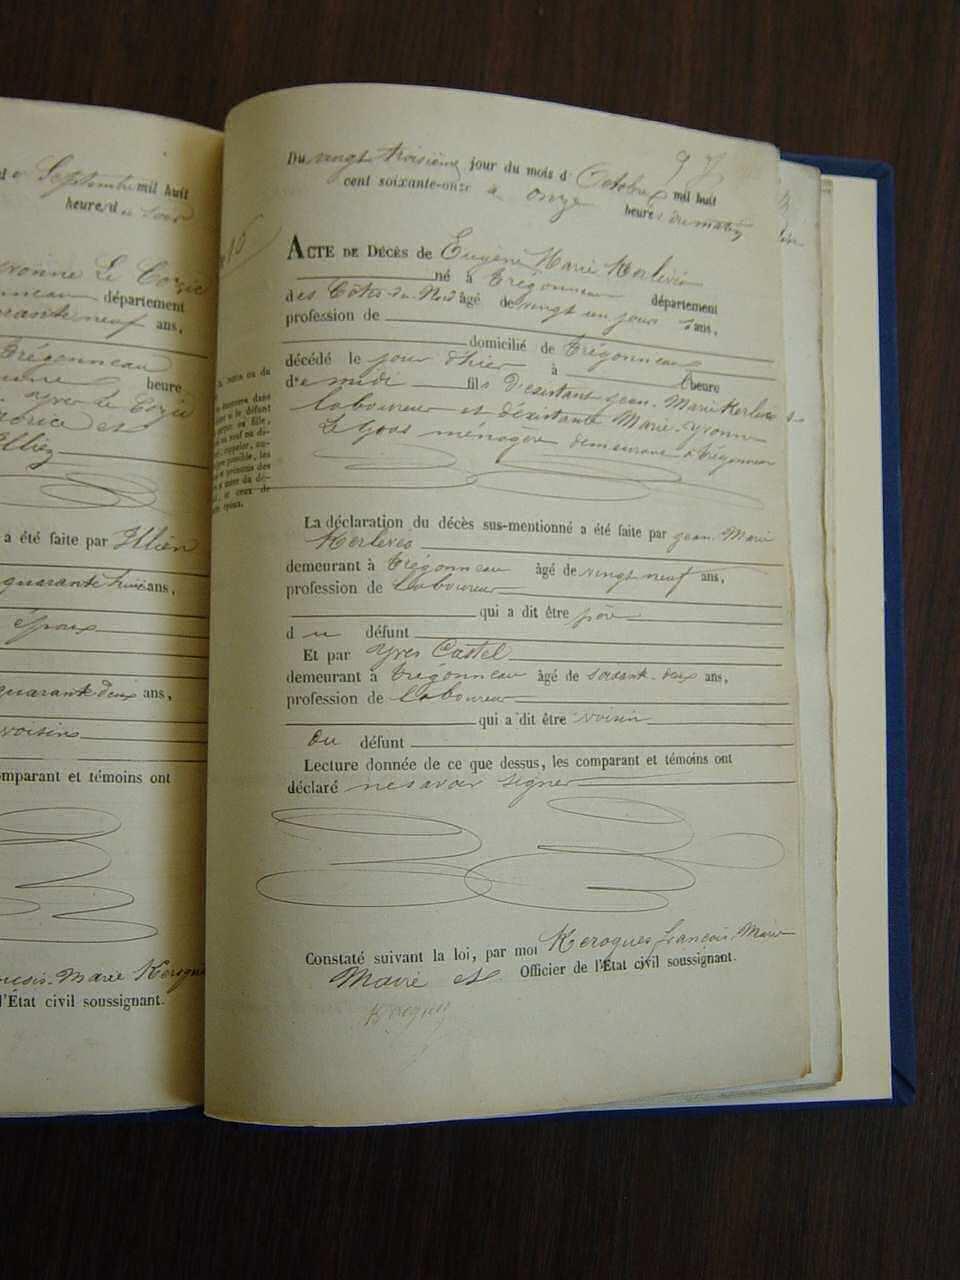 Septembre mil huit
heure du soir
Yvonne Le Cozic
département
quarante neuf ans,
Trégonneau
heure
Yves Le Cozic
et
Illiez
a été faite par Illien
quarante huit ans,
époux
quarante deux ans,
voisins
comparant et témoins ont
François-Marie Kerogues
l'État civil soussignant.
97
Du vingt troisième jour du mois d' Octobre mil huit
cent soixante-onze à onze heures du matin
15
ACTE DE DÉCÈS de Eugène Marie Kerlévéo
né à Trégonneau département
des Côtes-du-Nord âgé de vingt un jours ans,
profession de
domicilié de Trégonneau
décédé le jour d'hier à l'heure
de midi fils d'existant Jean-Marie Kerlévéo
laboureur et d'existante Marie-Yvonne
Le Goas ménagère demeurant à Trégonneau
La déclaration du décès sus-mentionné a été faite par Jean Marie
Kerlévéo
demeurant à Trégonneau âgé de vingt neuf ans,
profession de laboureur
qui a dit être père
du défunt
Et par Yves Castel
demeurant à Trégonneau âgé de soixante-deux ans,
profession de laboureur
qui a dit être voisin
du défunt
Lecture donnée de ce que dessus, les comparant et témoins ont
déclaré ne savoir signer
Constaté suivant la loi, par moi Kerogues François-Marie
Maire et Officier de l'État civil soussignant.